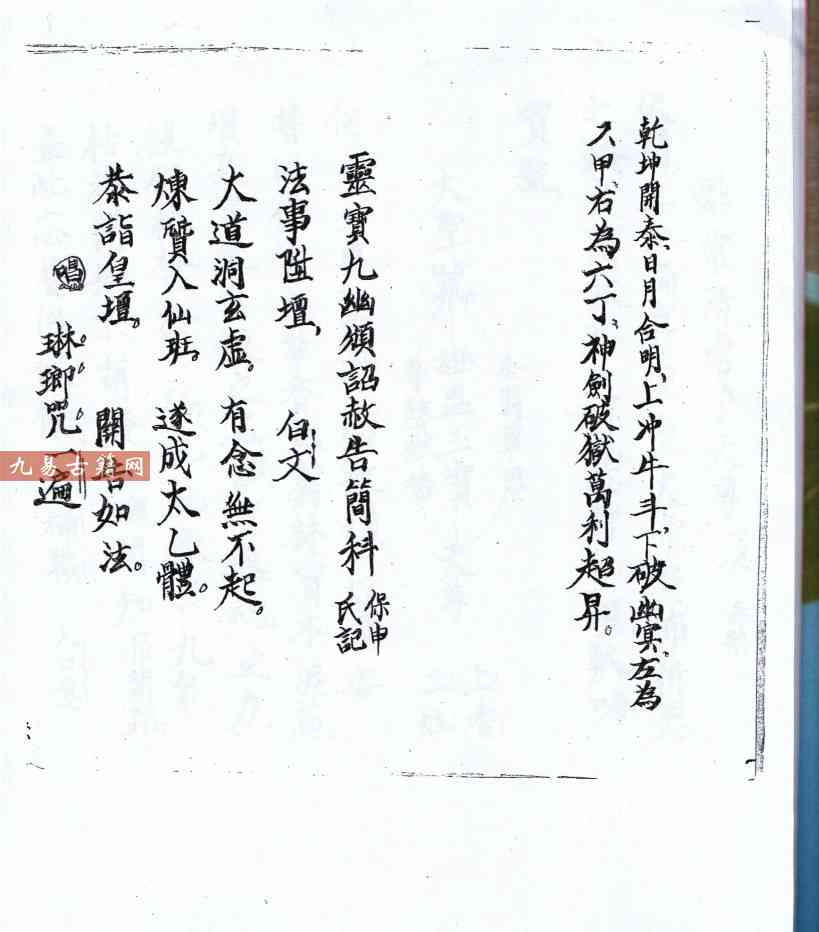 乾坤開泰、日月合明、上冲牛斗、下破幽冥、左為
六甲、右為六丁、神劍破獄萬利超昇。
靈寶九幽頒詔赦告簡科 保申氏記
法事陞壇、 白文
大道洞玄虛。有念無不起。
煉質入仙班。遂成太乙體。
恭詣皇壇。 開啓如法。
唱 琳瑯咒。一遍
九易古籍网